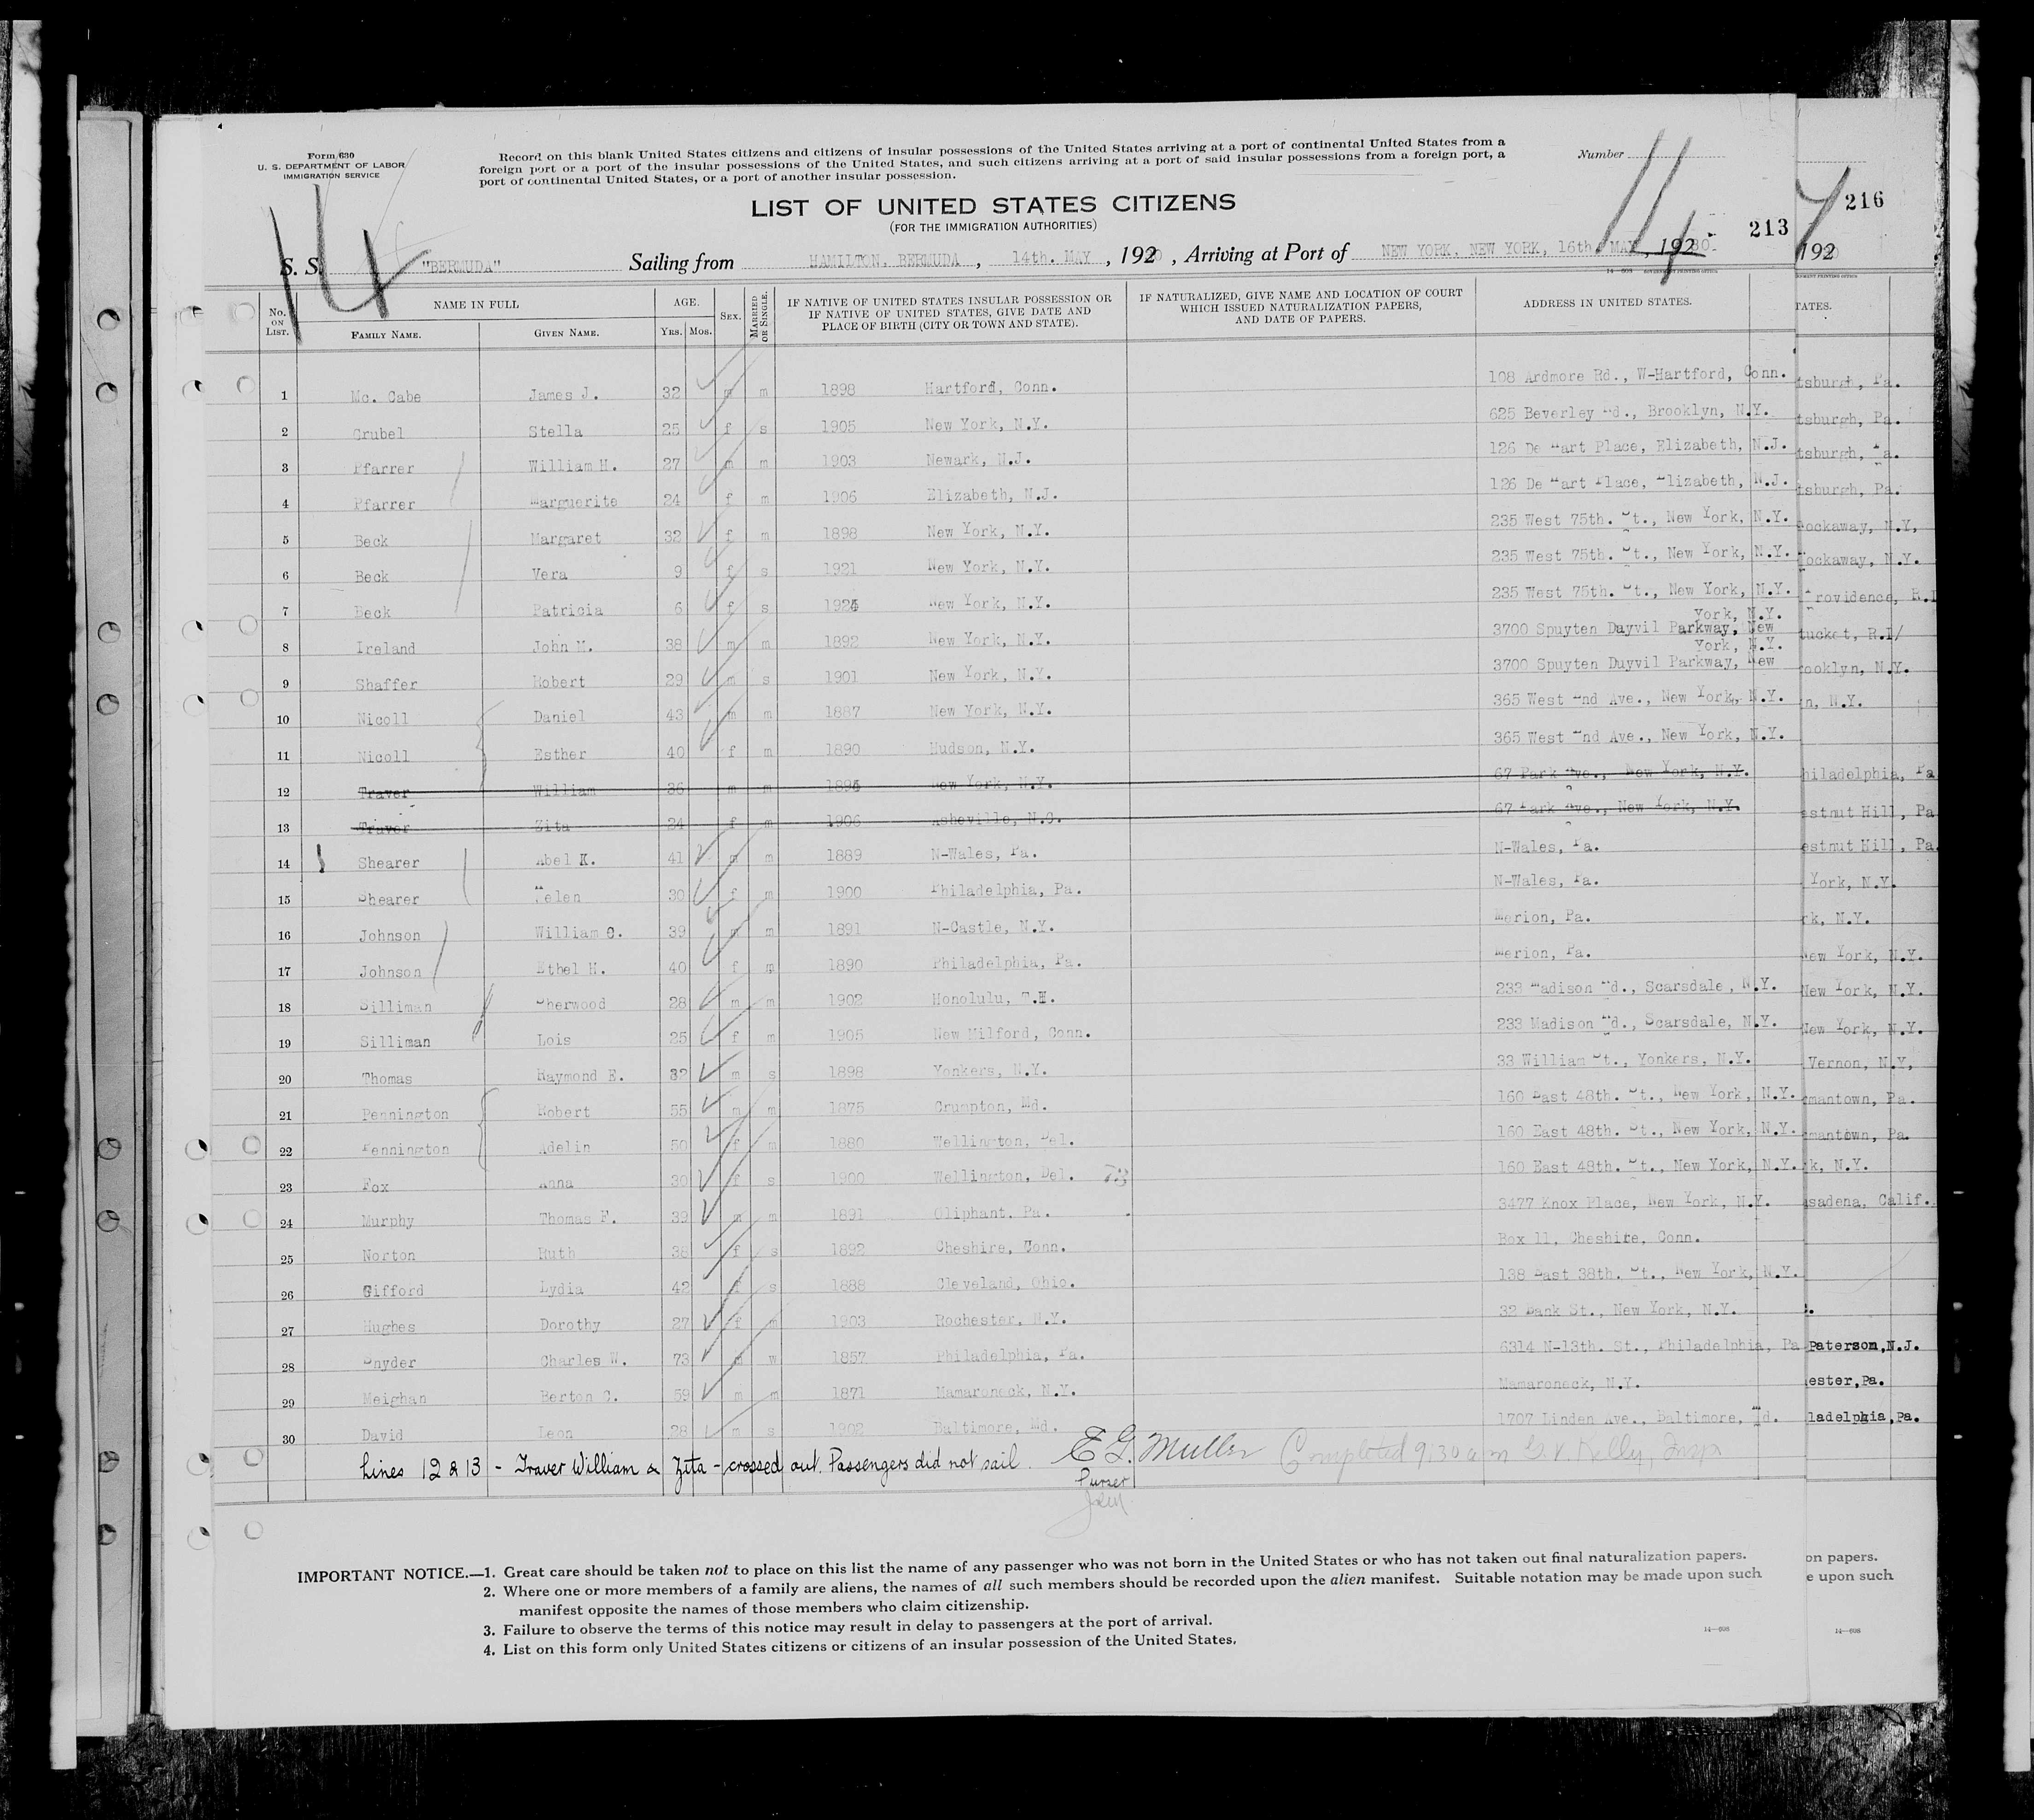 Form 630
U. S. DEPARTMENT OF LABOR
IMMIGRATION SERVICE
Record on this blank United States citizens and citizens of insular possessions of the United States arriving at a port of continental United States from a
foreign port or a port of the insular possessions of the United States, and such citizens arriving at a port of said insular possessions from a foreign port, a
port of continental United States, or a port of another insular possession.
Number
14
11
LIST OF UNITED STATES CITIZENS
(FOR THE IMMIGRATION AUTHORITIES)
213
216
S. S. "BERMUDA" Sailing from HAMILTON, BERMUDA, 14th. MAY, 1920, Arriving at Port of NEW YORK, NEW YORK, 16th. MAY, 19230
192
No. ON LIST. NAME IN FULL AGE. SEX. MARRIED OR SINGLE. IF NATIVE OF UNITED STATES INSULAR POSSESSION OR IF NATIVE OF UNITED STATES, GIVE DATE AND PLACE OF BIRTH (CITY OR TOWN AND STATE). IF NATURALIZED, GIVE NAME AND LOCATION OF COURT WHICH ISSUED NATURALIZATION PAPERS, AND DATE OF PAPERS. ADDRESS IN UNITED STATES. TATES.
FAMILY NAME. GIVEN NAME. YRS. MOS.
1 Mc. Cabe James J. 32 m m 1898 Hartford, Conn. 108 Ardmore Rd., W-Hartford, Conn. tsburgh, Pa.
2 Grubel Stella 25 f s 1905 New York, N.Y. 625 Beverley Rd., Brooklyn, N.Y. tsburgh, Pa.
3 Pfarrer William H. 27 m m 1903 Newark, N.J. 126 De Hart Place, Elizabeth, N.J. tsburgh, Pa.
4 Pfarrer Marguerite 24 f m 1906 Elizabeth, N.J. 126 De Hart Place, Elizabeth, N.J. tsburgh, Pa.
5 Beck Margaret 32 f m 1898 New York, N.Y. 235 West 75th. St., New York, N.Y. ockaway, N.Y,
6 Beck Vera 9 f s 1921 New York, N.Y. 235 West 75th. St., New York, N.Y. ockaway, N.Y.
7 Beck Patricia 6 f s 1924 New York, N.Y. 235 West 75th. St., New York, N.Y. Providence, R.I
8 Ireland John M. 38 m m 1892 New York, N.Y. 3700 Spuyten Dayvil Parkway, New York, N.Y. tucket, R.I/
9 Shaffer Robert 29 m s 1901 New York, N.Y. 3700 Spuyten Duyvil Parkway, New York, N.Y. ooklyn, N.Y.
10 Nicoll Daniel 43 m m 1887 New York, N.Y. 365 West End Ave., New York, N.Y. n, N.Y.
11 Nicoll Esther 40 f m 1890 Hudson, N.Y. 365 West End Ave., New York, N.Y.
12 Traver William 36 m m 1894 New York, N.Y. 67 Park Ave., New York, N.Y. hiladelphia, Pa
13 Traver Zita 24 f m 1906 Asheville, N.C. 67 Park Ave., New York, N.Y. estnut Hill, Pa
14 Shearer Abel K. 41 m m 1889 N-Wales, Pa. N-Wales, Pa. estnut Hill, Pa.
15 Shearer Helen 30 f m 1900 Philadelphia, Pa. N-Wales, Pa. York, N.Y.
16 Johnson William C. 39 m m 1891 N-Castle, N.Y. Merion, Pa. rk, N.Y.
17 Johnson Ethel H. 40 f m 1890 Philadelphia, Pa. Merion, Pa. New York, N.Y.
18 Silliman Sherwood 28 m m 1902 Honolulu, T.H. 233 Madison Rd., Scarsdale, N.Y. New York, N.Y.
19 Silliman Lois 25 f m 1905 New Milford, Conn. 233 Madison Rd., Scarsdale, N.Y. New York, N.Y.
20 Thomas Raymond E. 32 m s 1898 Yonkers, N.Y. 33 William St., Yonkers, N.Y. Vernon, N.Y,
21 Pennington Robert 55 m m 1875 Crumpton, Md. 160 East 48th. St., New York, N.Y. mantown, Pa.
22 Pennington Adelin 50 f m 1880 Wellington, Del. 160 East 48th. St., New York, N.Y. mantown, Pa.
23 Fox Anna 30 f s 1900 Wellington, Del. 73 160 East 48th. St., New York, N.Y. k, N.Y.
24 Murphy Thomas F. 39 m m 1891 Oliphant, Pa. 3477 Knox Place, New York, N.Y. asadena, Calif.
25 Norton Ruth 38 f s 1892 Cheshire, Conn. Box 11, Cheshire, Conn.
26 Gifford Lydia 42 f s 1888 Cleveland, Ohio. 138 East 38th. St., New York, N.Y.
27 Hughes Dorothy 27 f m 1903 Rochester, N.Y. 32 Bank St., New York, N.Y.
28 Snyder Charles W. 73 m w 1857 Philadelphia, Pa. 6314 N-13th. St., Philadelphia, Pa Paterson, N.J.
29 Meighan Berton C. 59 m m 1871 Mamaroneck, N.Y. Mamaroneck, N.Y. ester, Pa.
30 David Leon 28 m s 1902 Baltimore, Md. 1707 Linden Ave., Baltimore, Md. ladelphia, Pa.
Lines 12 & 13 - Traver William & Zita - crossed out. Passengers did not sail. E G. Muller Completed 9:30 a m G. V. Kelly, Insp
Purser
IMPORTANT NOTICE.—1. Great care should be taken not to place on this list the name of any passenger who was not born in the United States or who has not taken out final naturalization papers. on papers.
2. Where one or more members of a family are aliens, the names of all such members should be recorded upon the alien manifest. Suitable notation may be made upon such e upon such
manifest opposite the names of those members who claim citizenship.
3. Failure to observe the terms of this notice may result in delay to passengers at the port of arrival.
4. List on this form only United States citizens or citizens of an insular possession of the United States.
14—608 14—608